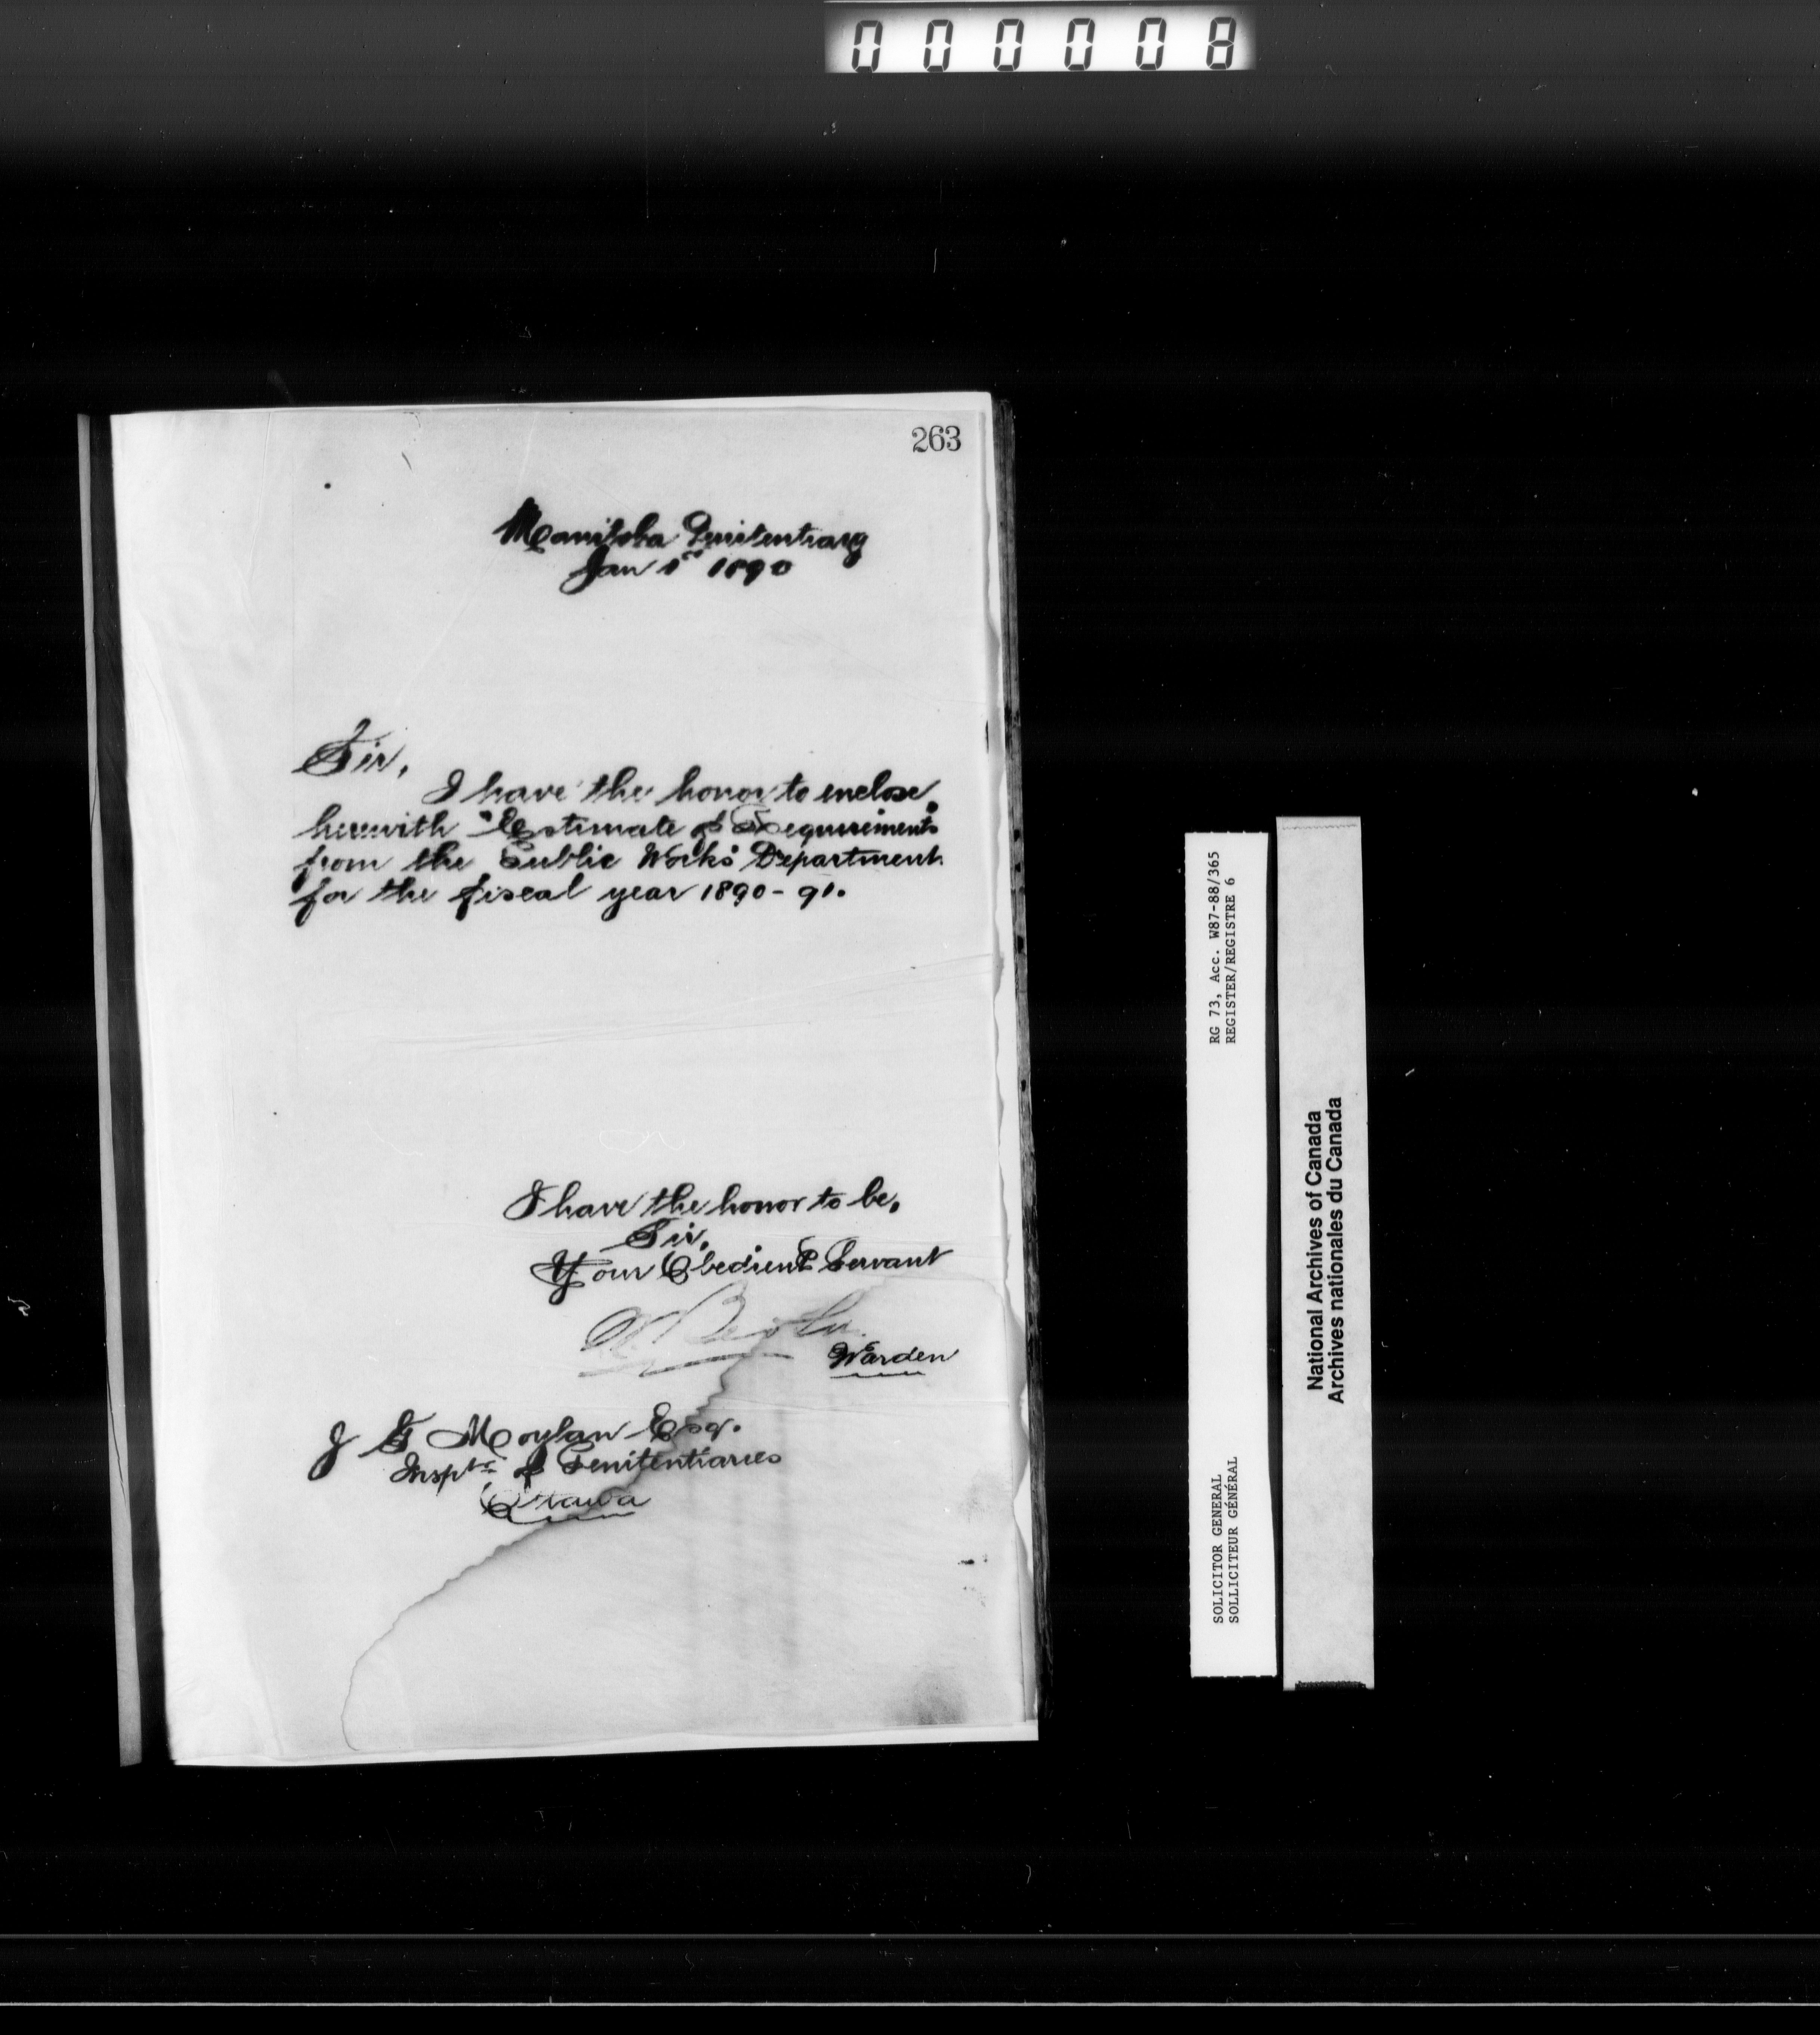 000008
263
Manitoba Penitentiary
Jan 1st 1890
Sir,
I have the honor to enclose
herewith "Estimate of Requirements"
from the Public Works Department
for the fiscal year 1890-91.
I have the honor to be,
Sir,
Your Obedient Servant
Warden
J G Moylan Esq.
Inspt'r of Penitentiaries
Ottawa
RG 73, Acc. W87-88/365
REGISTER/REGISTRE 6
SOLICITOR GENERAL
SOLLICITEUR GÉNÉRAL
National Archives of Canada
Archives nationales du Canada